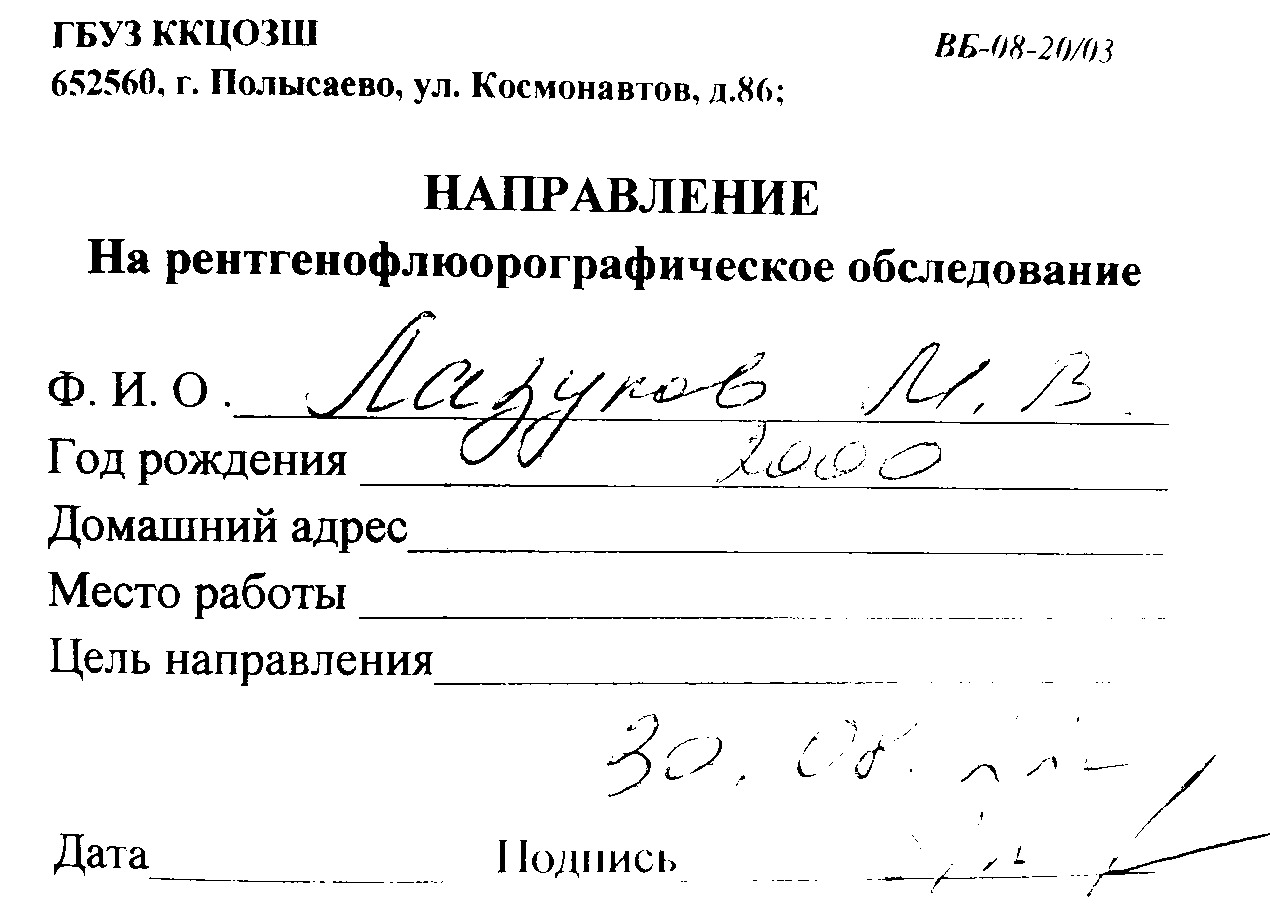 ГБУЗ ККЦОЗШ
ВБ-08-20/03
652560, г. Полысаево, ул. Космонавтов, д.86;
НАПРАВЛЕНИЕ
На рентгенофлюорографическое обследование
Ф. И. О . Лазуков М. В.
Год рождения 2000
Домашний адрес
Место работы
Цель направления
30. 08.
Дата Подпись